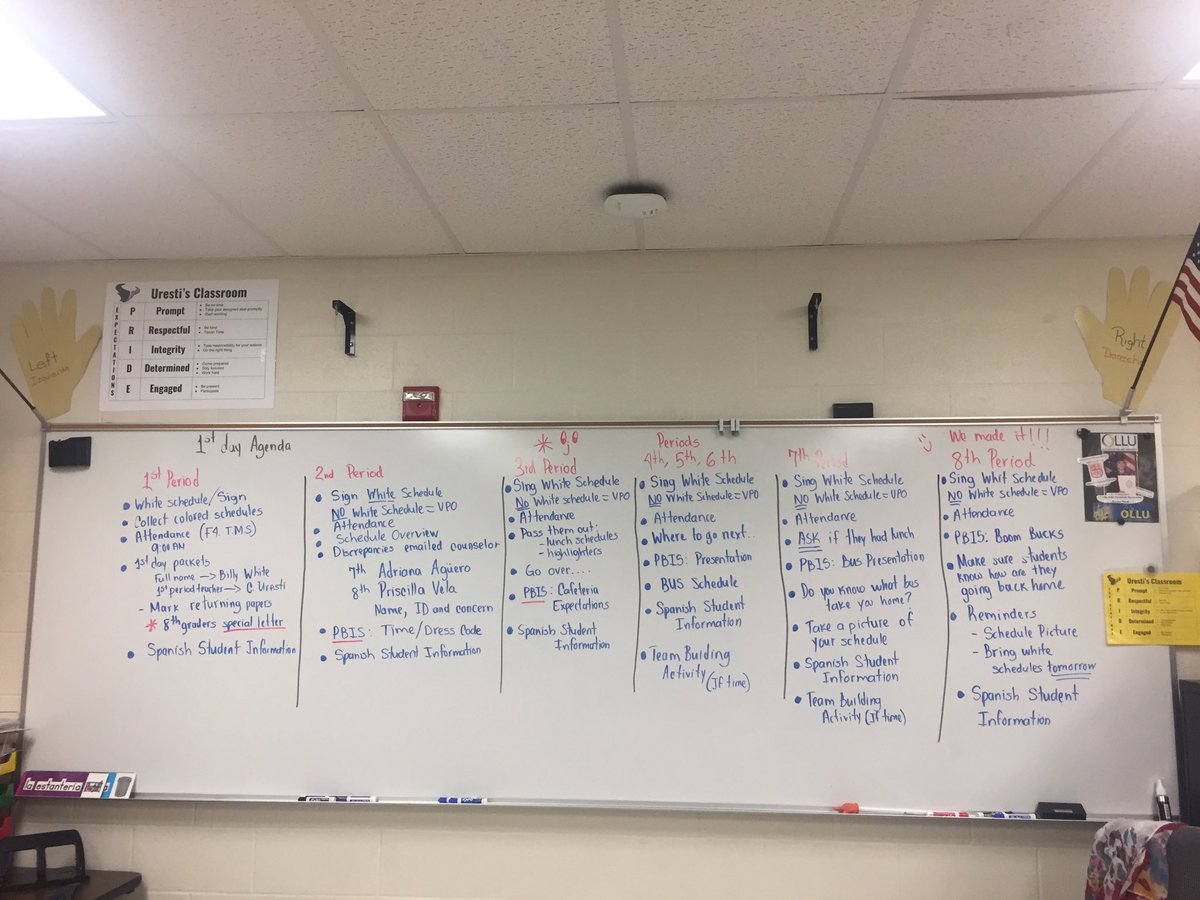 Uresti's Classroom
EXPECTATIONS
P Prompt
R Respectful
I Integrity
D Determined
E Engaged
Be on time
Take your assigned seat promptly
Start working
Be kind
Take responsibility for your actions
Do the right thing
Come prepared
Stay focused
Work hard
Be present
Participate
Left
Izquierda
Right
Derecha
1st day Agenda
1st Period
White schedule/Sign
Collect colored schedules
Attendance (F4. T.M.S)
9:00 AM
1st day packets
Full name → Billy White
1st period teacher → C. Uresti
- Mark returning papers
* 8th graders special letter
Spanish Student Information
2nd Period
Sign White Schedule
NO White Schedule = VPO
Attendance
Schedule Overview
Discrepancies emailed counselor
7th Adriana Agüero
8th Priscilla Vela
Name, ID and concern
PBIS: Time/Dress Code
Spanish Student Information
3rd Period
Sing White Schedule
No White schedule = VPO
Attendance
Pass them out:
- lunch schedules
- highlighters
Go over....
PBIS: Cafeteria
Expectations
Spanish Student
Information
Periods
4th, 5th, 6th
Sing White Schedule
NO White Schedule = VPO
Attendance
Where to go next..
PBIS: Presentation
BUS Schedule
Spanish Student
Information
Team Buiding
Activity (If time)
7th Period
Sing White Schedule
NO White Schedule = VPO
Attendance
ASK if they had lunch
PBIS: Bus Presentation
Do you know what bus
take you home?
Take a picture of
your schedule
Spanish Student
Information
Team Building
Activity (If time)
We made it!!!
8th Period
Sing Whit Schedule
NO White Schedule = VPO
Attendance
PBIS: Boom Bucks
Make sure students
know how are they
going back home
Reminders
- Schedule Picture
- Bring white
schedules tomorrow
Spanish Student
Information
OLLU
OLLU
Uresti's Classroom
P Prompt
R Respectful
I Integrity
D Determined
E Engaged
la estantería